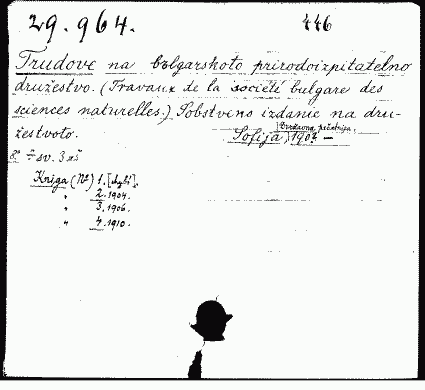 29.964. 446
Trudove na bъlgarskoto prirodoizpitatelno
družestvo. (Travaux de la société bulgare des
sciences naturelles.) Sobstveno izdanie na dru-
žestvoto. Sofija,
8° sv. 3
Kniga (Nº) 1. [chybí],
" 2. 1904.
" 3. 1906.
" 4. 1910.